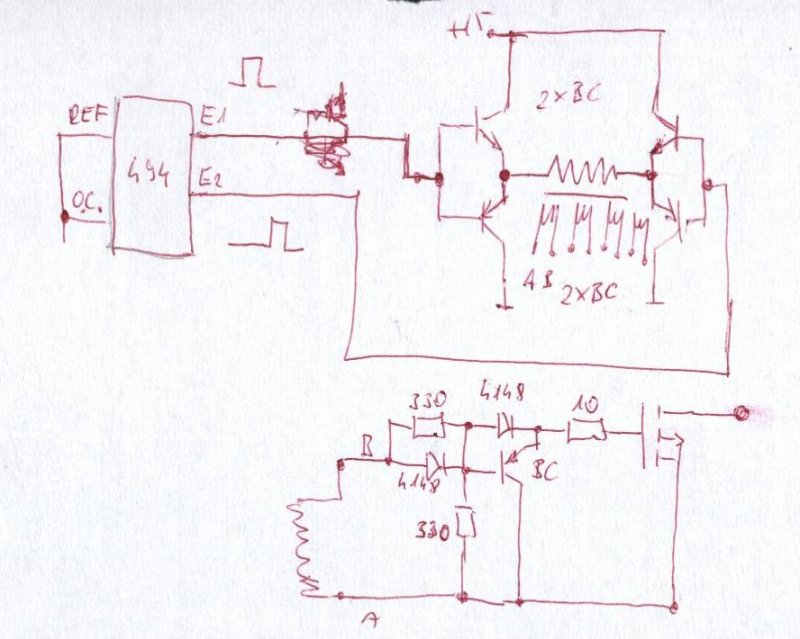 +15
2xBC
REF
E1
494
E2
O.C.
A B
2xBC
330
4148
10
B
4148
BC
330
A